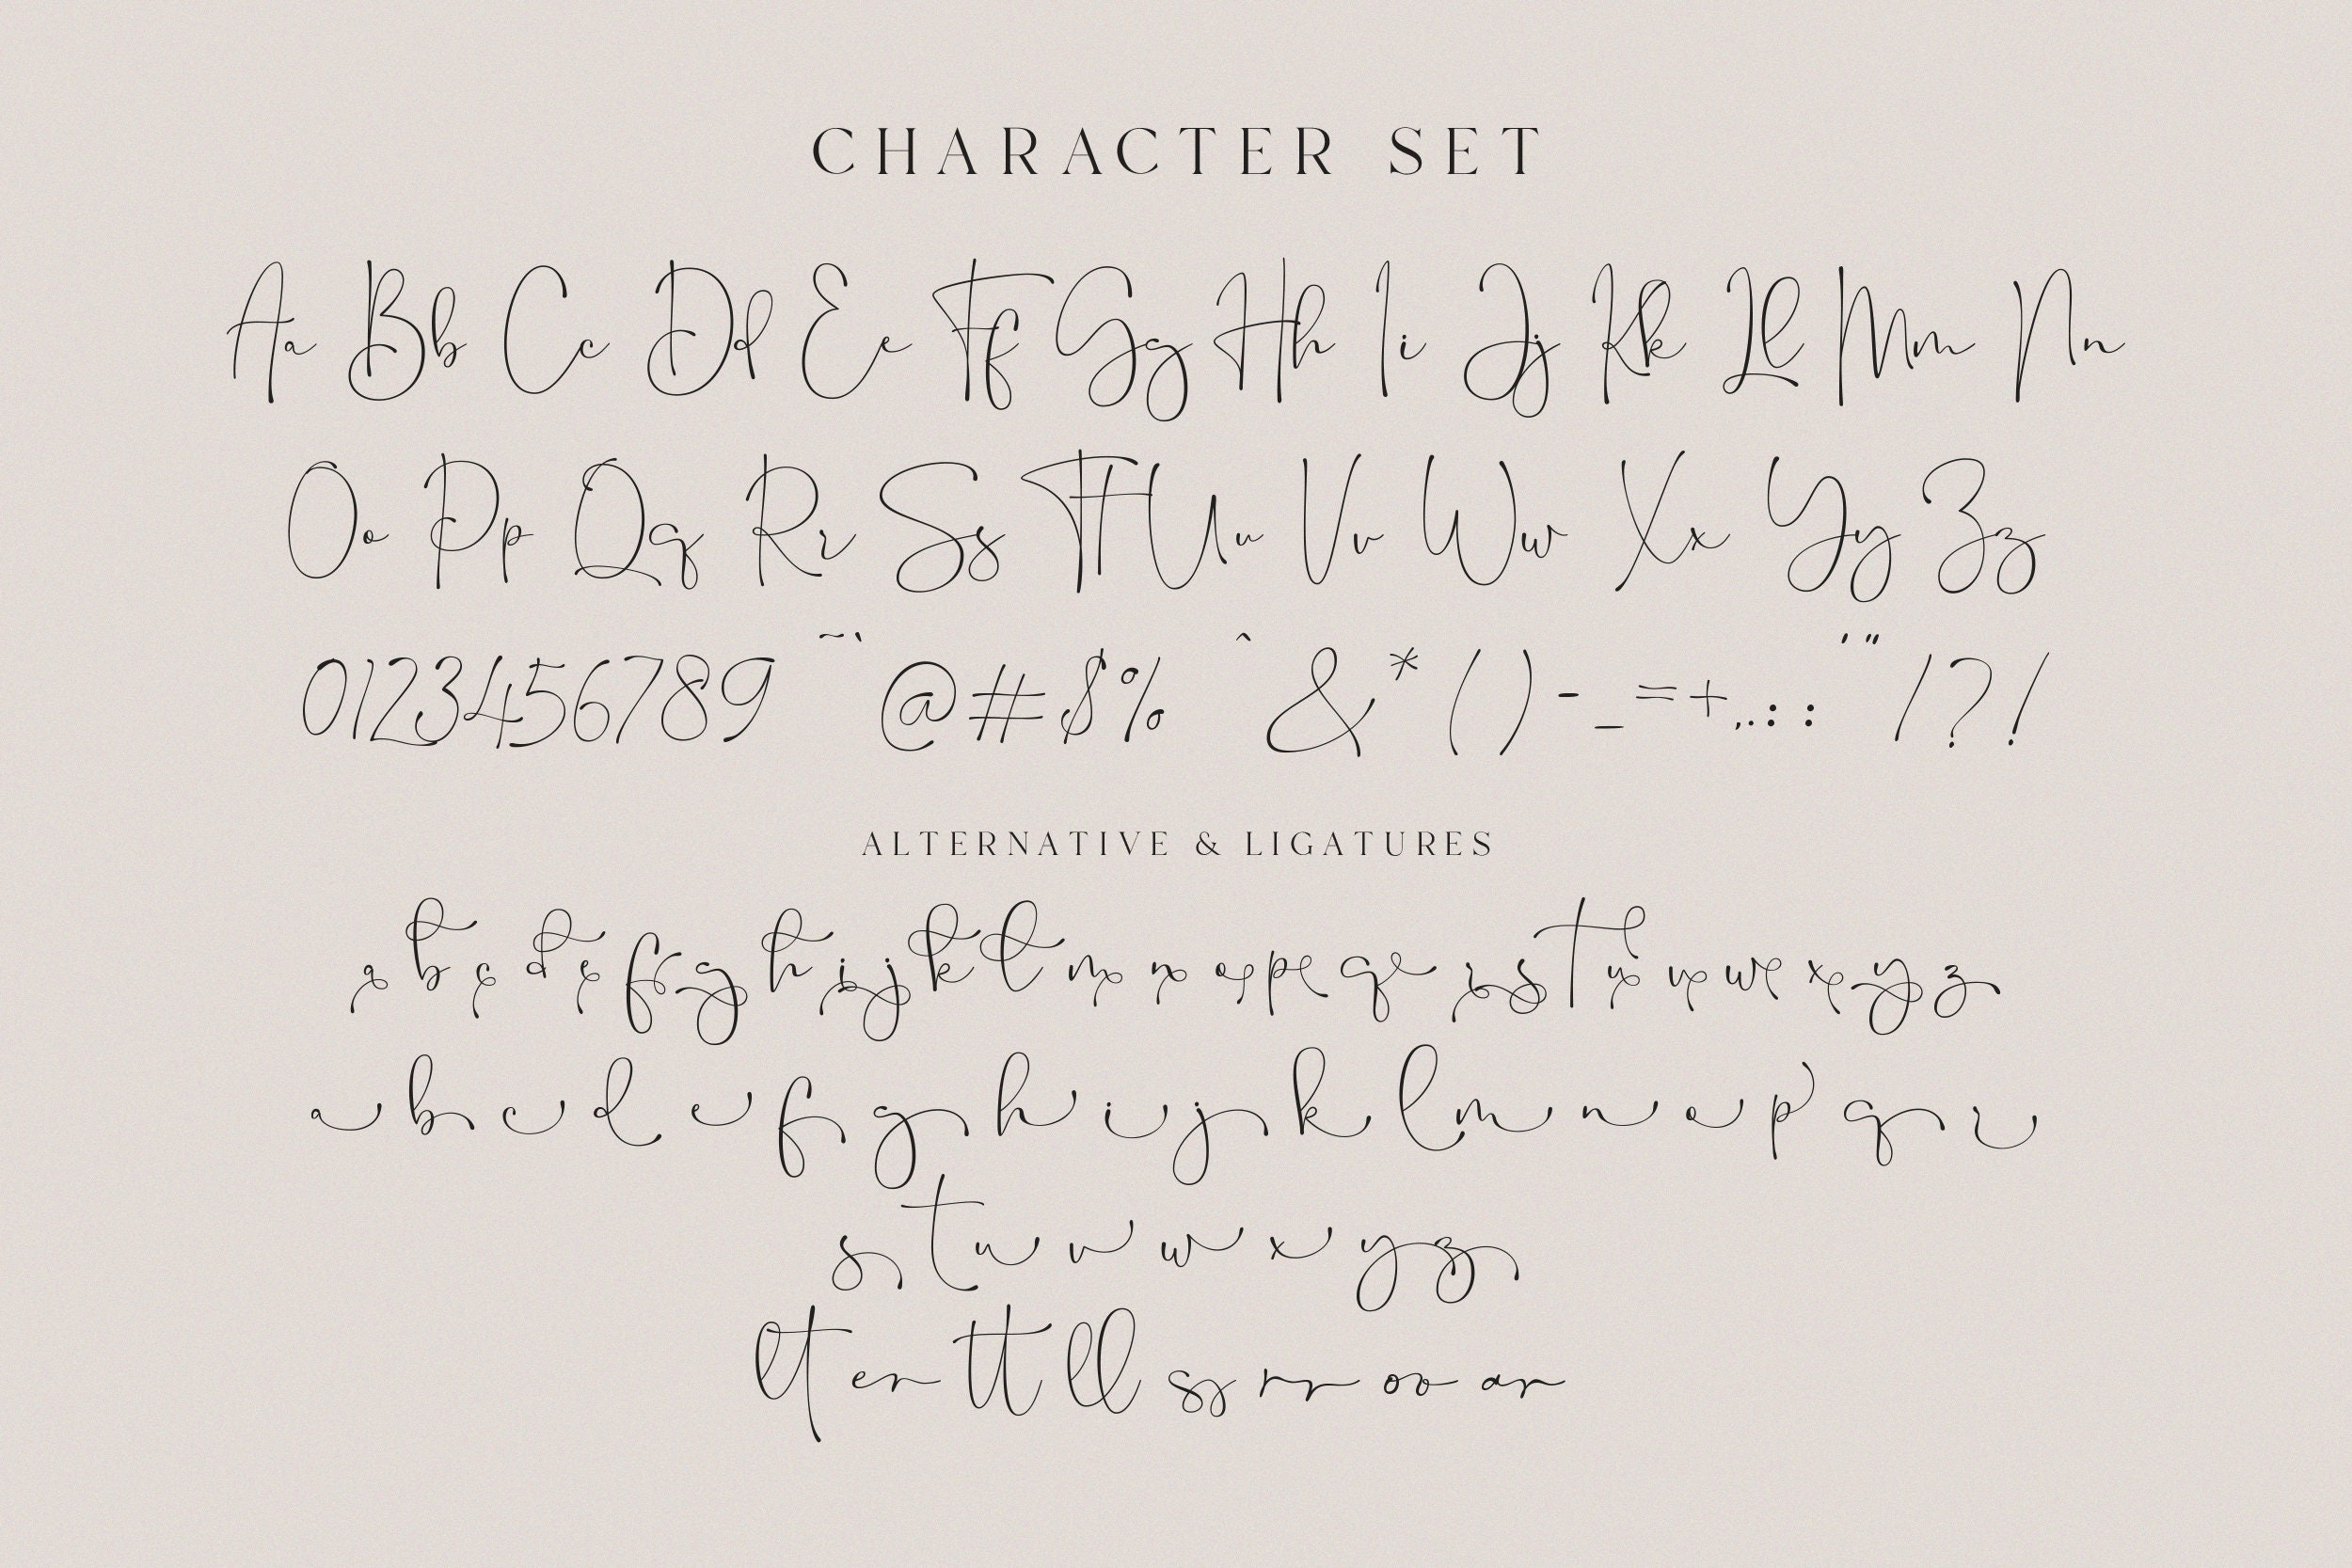 CHARACTER SET
Aa Bb Cc Dd Ee Ff Gg Hh Ii Jj Kk Ll Mm Nn
Oo Pp Qq Rr Ss Tt Uu Vv Ww Xx Yy Zz
0123456789 ~` @#$% ^ &*()-_=+,.:: '" /?!
ALTERNATIVE & LIGATURES
a b c d e f g h i j k l m n o p q r s t u v w x y z
a b c d e f g h i j k l m n o p q r
s t u v w x y z
lt er tt ll ss rr oo ar